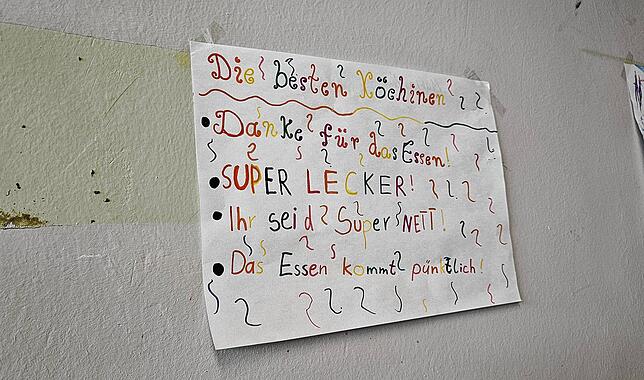 Die besten Köchinen
Danke für das Essen!
SUPER LECKER!
Ihr seid Super NETT!
Das Essen kommt pünktlich!